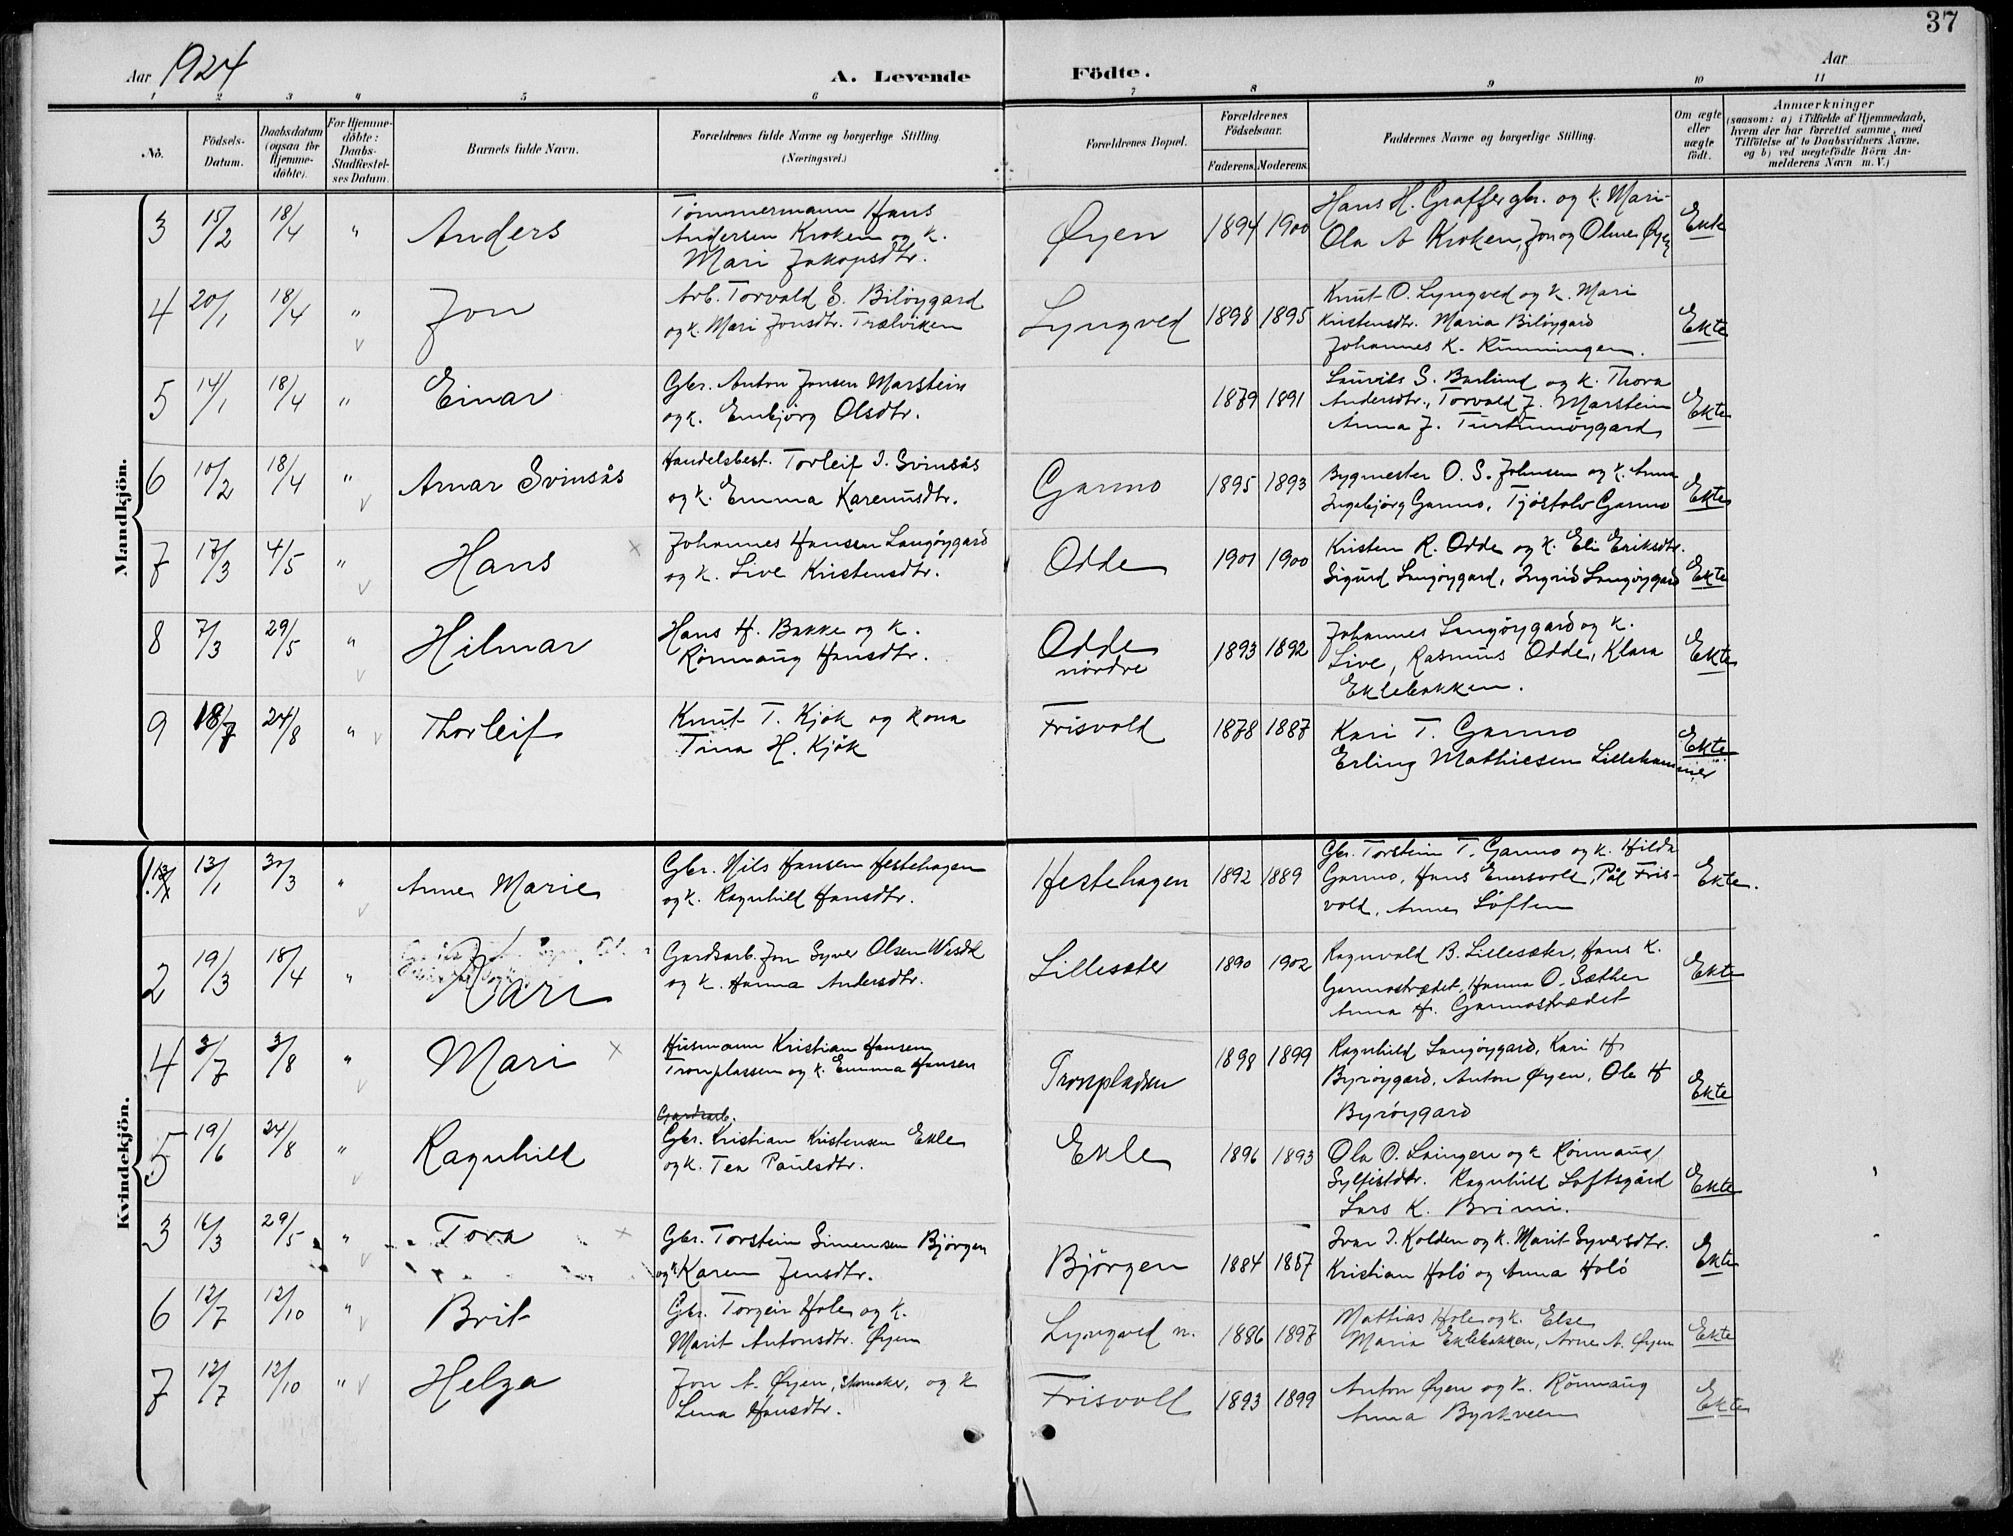 37
Aar 1924
A. Levende Födte.
Aar
1 2 3 4 5 6 7 8 9 10 11
No.
Födsels-Datum.
Daabsdatum (ogsaa for Hjemme-döbte).
For Hjemme-döbte: Daabs-Stadfæstel-ses Datum.
Barnets fulde Navn.
Forældrenes fulde Navne og borgerlige Stilling.
(Næringsvei.)
Forældrenes Bopæl.
Forældrenes Födselsaar.
Faderens. Moderens.
Faddernes Navne og borgerlige Stilling.
Om ægte eller uægte födt.
Anmærkninger
(saasom: a) i Tilfælde af Hjemmedaab,
hvem der har forrettet samme, med
Tilföielse af to Daabsvidners Navne,
og b) ved uægtefödte Börn An-
melderens Navn m. V.)
Mandkjön.
3 15/2 18/4 " Anders
Tømmermann Hans
Andersen Kroken og k.
Mari Jakopsdtr.
Øyen 1894 1900
Hans H. Graffergbr. og k. Mari
Ola A Kroken, Jon og Oline Øyen
Ekte
4 20/1 18/4 " Jon
Arb. Torvald S. Biløygard
og k. Mari Jonsdtr. Trælviken
Lyngved 1898 1895
Knut O. Lyngved og k. Mari
Kristensdtr. Maria Biløygard
Johannes K. Runningen.
Ekte
5 14/1 18/4 " Einar
Gbr. Anton Jonsen Marstein
og k. Embjørg Olsdtr.
1879 1891
Laurits S. Barlund og k. Thora
Andersdtr., Torvald J. Marstein
Anna J.
Ekte
6 10/2 18/4 " Arnar Svinsås
Handelsbest. Torleif I. Svinsås
og k. Emma Karenusdtr.
Garmo 1895 1893
Bygmester O. S. Johnsen og k. Anna
Ingebjørg Garmo, Tjøstolv Garmo
Ekte
7 17/3 4/5 " Hans
Johannes Hansen Langøygard
og k. Live Kristensdtr.
Odde 1901 1900
Kristen R. Odde og k. Eli Eriksdtr.
Sigurd Langøygard, Ingrid Langøygard
Ekte
8 7/3 29/5 " Hilmar
Hans H. Bakke og k.
Rønnaug Hansdtr.
Odde
nordre
1893 1892
Johannes Langøygard og k.
Live, Rasmus Odde, Klara
Eklebakken.
Ekte
9 18/7 24/8 " Thorleif
Knut T. Kjøk og kona
Tina H. Kjøk
Frisvold 1878 1887
Kari T. Garmo
Erling Mathiesen Lillehammer
Ekte
Kvindekjön.
1 13/1 30/3 " Anne Marie
Gbr. Nils Hansen Hestehagen
og k. Ragnhild Hansdtr.
Hestehagen 1892 1889
Gbr. Torstein T. Garmo og k. Hilda
Garmo, Hans Enersvold, Pål Fris-
vold, Anne Løften
Ekte.
2 19/3 18/4 " Kari
Gardsarb. Jon Syver Olsen
og k. Hanna Andersdtr.
Lillesæter 1890 1902
Ragnvald B. Lillesæter, Hans K.
Garmostrædet, Hanna O. Sæther
Anna H. Garmostrædet
Ekte
4 3/7 3/8 " Mari
Husmann Kristian Hansen
Tronplassen og k. Emma Hansen
Tronpladsen 1898 1899
Ragnhild Langøygard, Kari H
Byrøygard, Anton Øyen, Ole H
Byrøygard
Ekte
5 19/6 24/8 " Ragnhild
Gardsarb.
Gbr. Kristian Kristensen Ekle
og k. Tea Paulsdtr.
Ekle 1896 1893
Ola O. Laingen og k Rønnaug
Sylfestdtr. Ragnhild Loftsgård
Lars K. Brimi.
Ekte
3 16/3 29/5 " Tora
Gbr. Torstein Simensen Bjørgen
og k Karen Jensdtr.
Bjørgen 1884 1887
Ivar I. Kolden og k. Marit Syversdtr.
Kristian Holø og Anna Holø
Ekte
6 12/7 12/10 " Brit
Gbr. Torgeir Hole og k.
Marit Antonsdtr. Øyen
Lyngved n. 1886 1897
Mathias Hole og k. Else
Maria Eklebakken, Arne A. Øyen
Ekte
7 12/7 12/10 " Helga
Jon A. Øyen, Snekker, og k
Lina Hansdtr.
Frisvoll 1893 1899
Anton Øyen og k. Rønnaug
Anna Byrkveen
Ekte